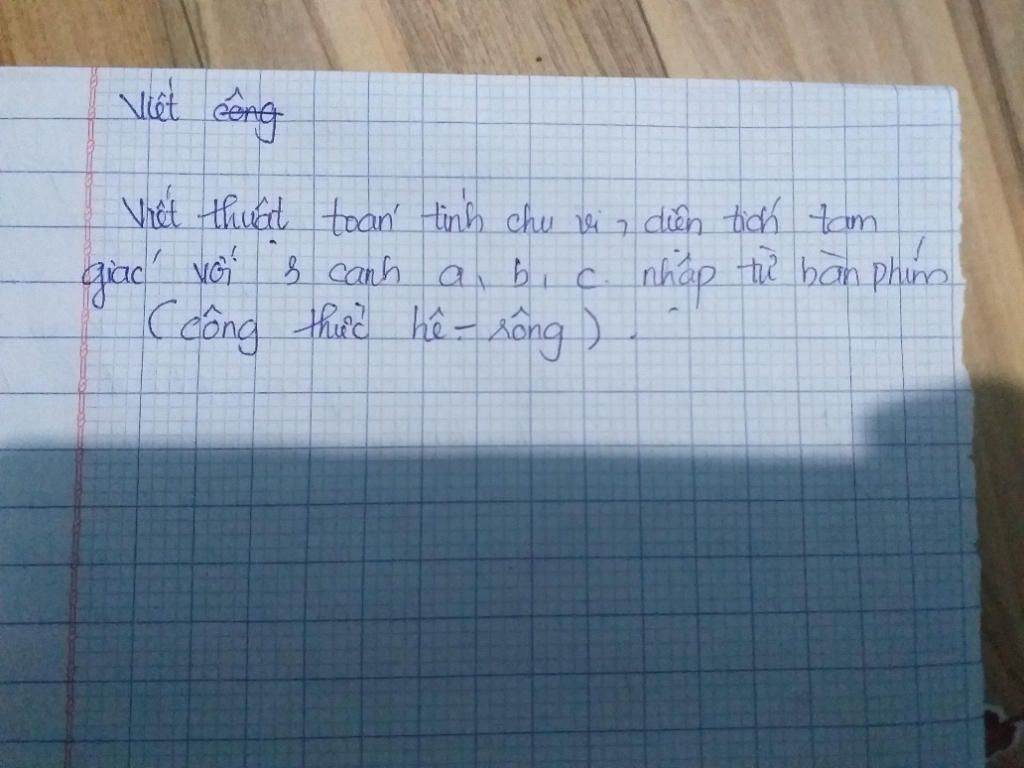 Viết công
Viết thuật toán tính chu vi, diện tích tam
giác với 3 cạnh a, b, c. nhập từ bàn phím
(công thức hê-rông).